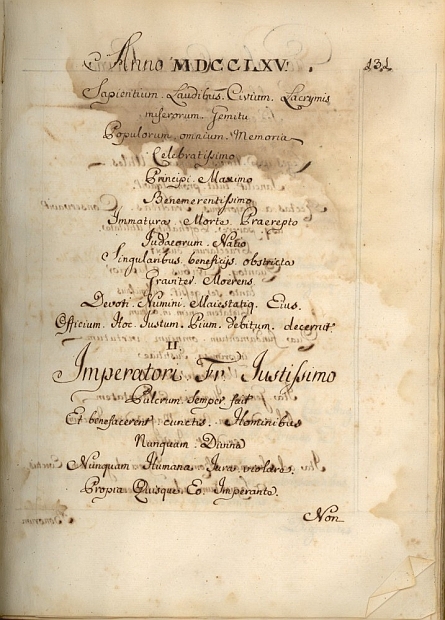 Anno MDCCLXV. 131
Sapientium. Laudibus. Civium. Lacrymis
miserorum. Gemitu
Populorum. omnium. Memoria
Celebratissimo
Principi. Maximo
Benemerentissimo
Immatura. Morte. Praerepto
Judaeorum. Natio
Singularibus. beneficijs. obstricta
Graviter. Moerens
Devoti. Numini. Maiestatiq. Eius.
Officium. Hoc. Justum. Pium. debitum. decernit
II
Imperatori Fr. Justissimo
Pulcrum. Semper. fuit
Et benefacerent cunctis. Hominibus
Nunquam. Divina
Nunquam Humana Jura. violare.
Propia Quisque. Eo. Imperante.
Non